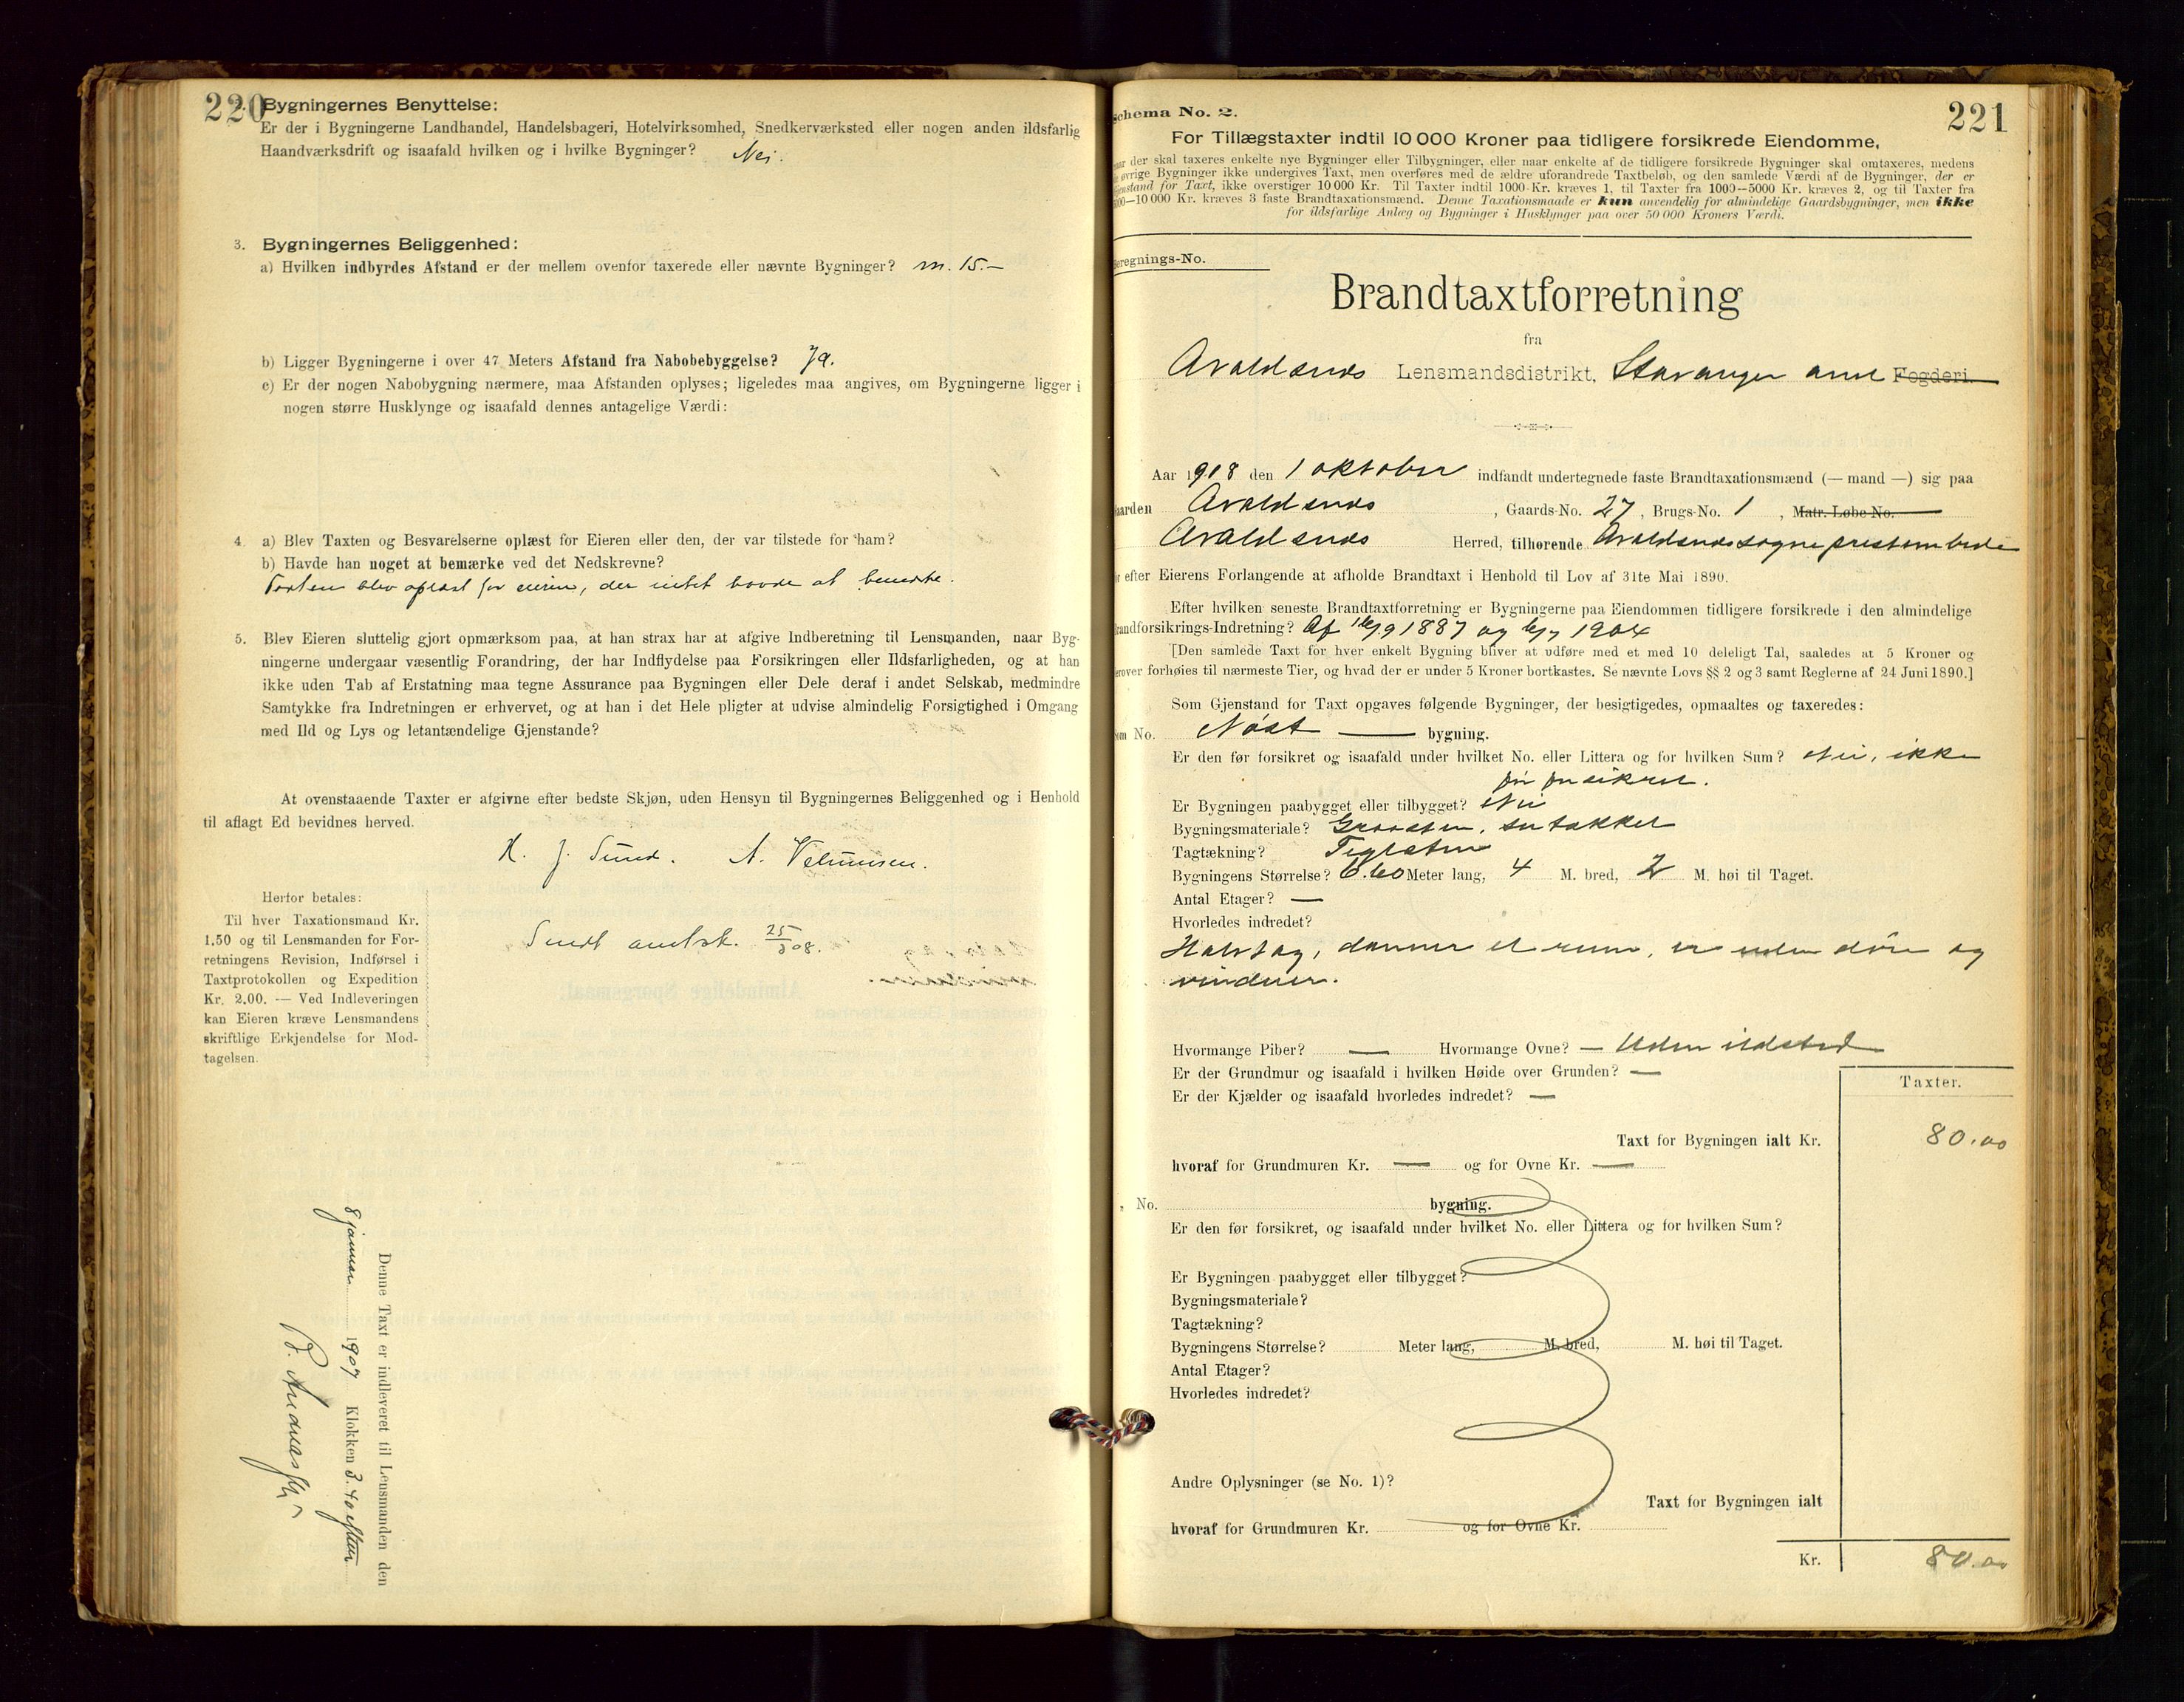 220
2. Bygningernes Benyttelse:
Er der i Bygningerne Landhandel, Handelsbageri, Hotelvirksomhed, Snedkerværksted eller nogen anden ildsfarlig
Haandværksdrift og isaafald hvilken og i hvilke Bygninger? Nei.
3. Bygningernes Beliggenhed:
a) Hvilken indbyrdes Afstand er der mellem ovenfor taxerede eller nævnte Bygninger? m. 15.–
b) Ligger Bygningerne i over 47 Meters Afstand fra Nabobebyggelse? Ja.
c) Er der nogen Nabobygning nærmere, maa Afstanden oplyses; ligeledes maa angives, om Bygningerne ligger i
nogen større Husklynge og isaafald dennes antagelige Værdi:
4. a) Blev Taxten og Besvarelserne oplæst for Eieren eller den, der var tilstede for ham?
b) Havde han noget at bemærke ved det Nedskrevne?
Taxten blev oplæst for eieren, der intet havde at bemerke.
5. Blev Eieren sluttelig gjort opmærksom paa, at han strax har at afgive Indberetning til Lensmanden, naar Byg-
ningerne undergaar væsentlig Forandring, der har Indflydelse paa Forsikringen eller Ildsfarligheden, og at han
ikke uden Tab af Erstatning maa tegne Assurance paa Bygningen eller Dele deraf i andet Selskab, medmindre
Samtykke fra Indretningen er erhvervet, og at han i det Hele pligter at udvise almindelig Forsigtighed i Omgang
med Ild og Lys og letantændelige Gjenstande?
At ovenstaaende Taxter er afgivne efter bedste Skjøn, uden Hensyn til Bygningernes Beliggenhed og i Henhold
til aflagt Ed bevidnes herved.
K. J. Sund. A.
Herfor betales:
Til hver Taxationsmand Kr.
1.50 og til Lensmanden for For-
retningens Revision, Indførsel i
Taxtprotokollen og Expedition
Kr. 2.00. — Ved Indleveringen
kan Eieren kræve Lensmandens
skriftlige Erkjendelse for Mod-
tagelsen.
Sendt amtsk. 25/3 08.
Denne Taxt er indleveret til Lensmanden den
8 januar 1907 Klokken 3.40 efter
221
Schema No. 2.
For Tillægstaxter indtil 10 000 Kroner paa tidligere forsikrede Eiendomme,
naar der skal taxeres enkelte nye Bygninger eller Tilbygninger, eller naar enkelte af de tidligere forsikrede Bygninger skal omtaxeres, medens
de øvrige Bygninger ikke undergives Taxt, men overføres med de ældre uforandrede Taxtbeløb, og den samlede Værdi af de Bygninger, der er
Gjenstand for Taxt, ikke overstiger 10 000 Kr. Til Taxter indtil 1000 Kr. kræves 1, til Taxter fra 1000—5000 Kr. kræves 2, og til Taxter fra
5000—10 000 Kr. kræves 3 faste Brandtaxationsmænd. Denne Taxationsmaade er kun anvendelig for almindelige Gaardsbygninger, men ikke
for ildsfarlige Anlæg og Bygninger i Husklynger paa over 50 000 Kroners Værdi.
Beregnings-No.
Brandtaxtforretning
fra
Avaldsnes Lensmandsdistrikt, Stavanger amt Fogderi.
Aar 1908 den 1 oktober indfandt undertegnede faste Brandtaxationsmænd (— mand —) sig paa
Gaarden Avaldsnes, Gaards-No. 27, Brugs-No. 1, Matr. Løbe-No.
Avaldsnes Herred, tilhørende Avaldsnes sogneprestembede
for efter Eierens Forlangende at afholde Brandtaxt i Henhold til Lov af 31te Mai 1890.
Efter hvilken seneste Brandtaxtforretning er Bygningerne paa Eiendommen tidligere forsikrede i den almindelige
Brandforsikrings-Indretning? Af 16/9 1887 og 6/7 1904
[Den samlede Taxt for hver enkelt Bygning bliver at udføre med et med 10 deleligt Tal, saaledes at 5 Kroner og
derover forhøies til nærmeste Tier, og hvad der er under 5 Kroner bortkastes. Se nævnte Lovs §§ 2 og 3 samt Reglerne af 24 Juni 1890.]
Som Gjenstand for Taxt opgaves følgende Bygninger, der besigtigedes, opmaaltes og taxeredes:
Som No. Nøst — bygning.
Er den før forsikret og isaafald under hvilket No. eller Littera og for hvilken Sum? Nei, ikke
før forsikret.
Er Bygningen paabygget eller tilbygget? Nei
Bygningsmateriale? Graasten,
Tagtækning? Teglsten
Bygningens Størrelse? 6.60 Meter lang, 4 M. bred, 2 M. høi til Taget.
Antal Etager? —
Hvorledes indredet?
Halvtag, danner et rum, er uden døre og
vinduer.
Hvormange Piber? — Hvormange Ovne? — Uden ildsted
Er der Grundmur og isaafald i hvilken Høide over Grunden? —
Er der Kjælder og isaafald hvorledes indredet? —
Taxter.
Taxt for Bygningen ialt Kr. 80.00
hvoraf for Grundmuren Kr. — og for Ovne Kr. —
„ No. bygning.
Er den før forsikret, og isaafald under hvilket No. eller Littera og for hvilken Sum?
Er Bygningen paabygget eller tilbygget?
Bygningsmateriale?
Tagtækning?
Bygningens Størrelse? Meter lang, M. bred, M. høi til Taget.
Antal Etager?
Hvorledes indredet?
Andre Oplysninger (se No. 1)?
Taxt for Bygningen ialt
hvoraf for Grundmuren Kr. og for Ovne Kr.
Kr. 80.00